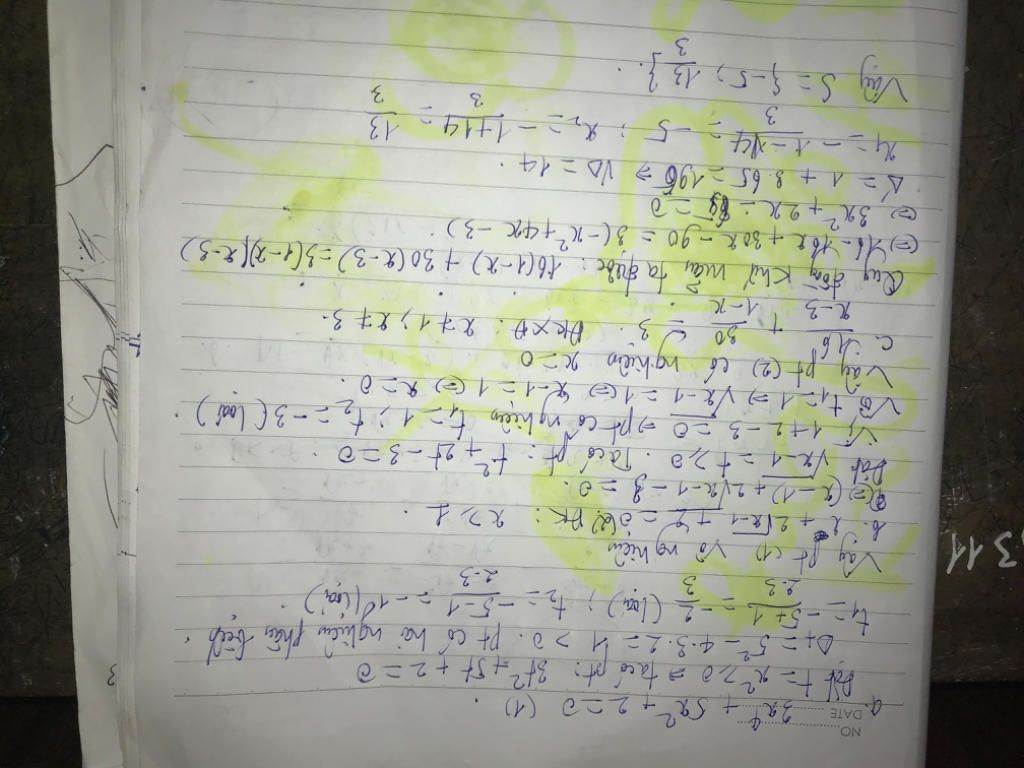 NO
DATE
a. 3x⁴ + 5x² + 2 = 0 (1)
Đặt t = x² ≥ 0 ⇒ ta có pt: 3t² + 5t + 2 = 0
Δt = 5² - 4.3.2 = 1 > 0. pt có hai nghiệm phân biệt.
t₁ = (-5+1)/(2.3) = -2/3 (loại), t₂ = (-5-1)/(2.3) = -1 (loại).
Vậy pt (1) vô nghiệm
b. x + 2√x-1 + 2 = 0 (2). ĐK: x ≥ 1
(2) ⇔ (x-1) + 2√x-1 - 3 = 0.
Đặt √x-1 = t ≥ 0. Ta có pt: t² + 2t - 3 = 0
Vì 1+2-3 = 0 ⇒ pt có nghiệm t₁ = 1, t₂ = -3 (loại).
Với t₁ = 1 ⇒ √x-1 = 1 ⇔ x-1 = 1 ⇔ x = 0.
Vậy pt (2) có nghiệm x = 0
c. 16/(x-3) + 30/(1-x) = 3. ĐKXĐ: x ≠ 1, x ≠ 3.
Quy đồng khử mẫu ta được: 16(1-x) + 30(x-3) = 3(1-x)(x-3)
(=) 16 - 16x + 30x - 90 = 3(-x² + 4x - 3).
(=) 3x² + 2x - 65 = 0
Δ' = 1 + 3.65 = 196 ⇒ √Δ = 14.
x₁ = (-1-14)/3 = -5; x₂ = (-1+14)/3 = 13/3
Vậy S = {-5; 13/3}.
3
311